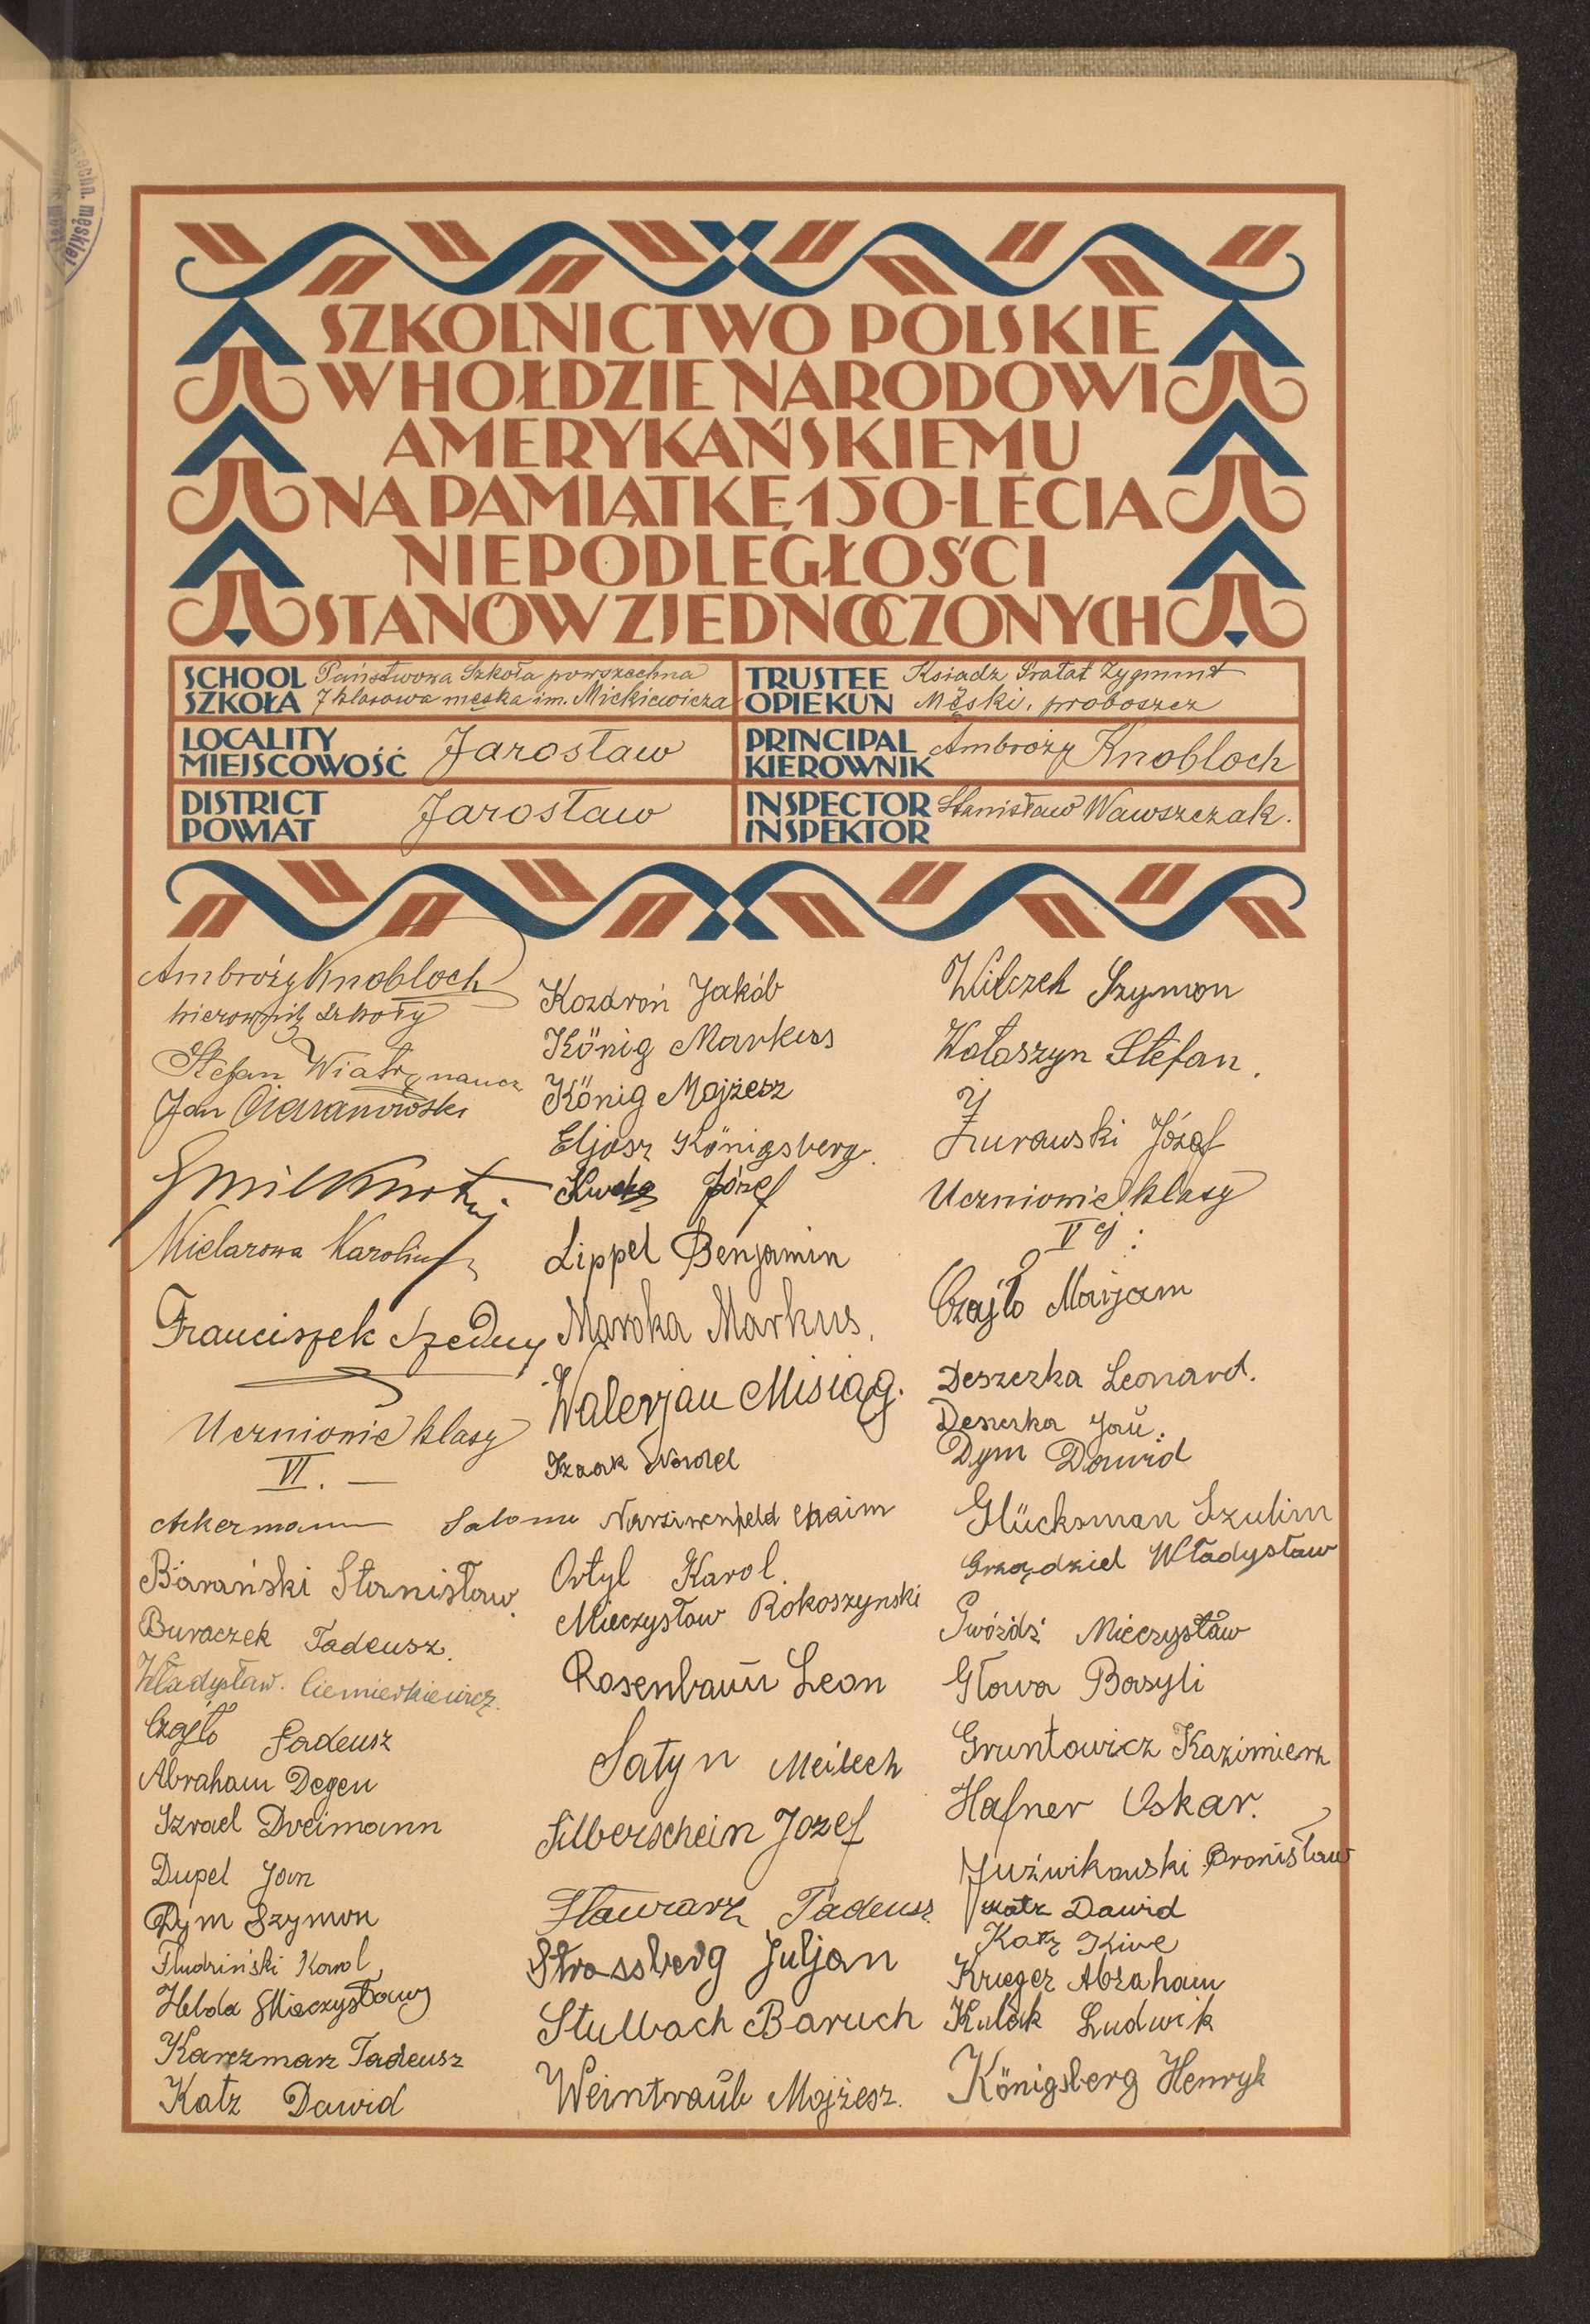 SZKOLNICTWO POLSKIE
W HOŁDZIE NARODOWI
AMERYKAŃSKIEMU
NA PAMIĄTKĘ 150-LECIA
NIEPODLEGŁOŚCI
STANÓW ZJEDNOCZONYCH
SCHOOL
SZKOŁA
Państwowa Szkoła powszechna
7 klasowa męska im. Mickiewicza
TRUSTEE
OPIEKUN
Ksiadz Prałat Zygmunt
Męski, proboszcz
LOCALITY
MIEJSCOWOŚĆ
Jarosław
PRINCIPAL
KIEROWNIK
Ambroży Knobloch
DISTRICT
POWIAT
Jarosław
INSPECTOR
INSPEKTOR
Stanisław Wawszczak.
Ambroży Knobloch
kierownik szkoły
Stefan Wiatr, naucz
Jan
Emil
Mielarowa Karolina
Franciszek
Uczniowie klasy
VI. —
Ackermann Salomo
Barański Stanisław.
Buraczek Tadeusz.
Władysław. Ciemierkiewicz.
Czajło Tadeusz
Abraham Degen
Izrael Dreimann
Dupel Jan
Dym Szymon
Fludziński Karol
Helda Mieczysław
Karczmarz Tadeusz
Katz Dawid
Kozdroń Jakób
König Markus
König Mojżesz
Eljasz Königsberg.
Józef
Lippel Benjamin
Maroka Markus.
Walerjan Misiąg.
Izaak
Chaim
Ortyl Karol.
Mieczysław Rokoszynski
Rosenbaum Leon
Satyn Meilech
Silberschein Jozef
Stawarz Tadeusz
Strassberg Juljan
Stulbach Baruch
Weintraub Mojżesz.
Wilczek Szymon
Wołoszyn Stefan.
Żurawski Józef
Uczniowie klasy
V ej:
Czajło Marjam
Deszczka Leonard.
Deszczka Jan.
Dym Dawid
Glücksman Szulim
Grządziel Władysław
Gwóźdź Mieczysław
Głowa Basyli
Gruntowicz Kazimierz
Hafner Oskar.
Juźwikowski Bronisław
Katz Dawid
Katz Kive
Krieger Abraham
Kulak Ludwik
Königsberg Henryk